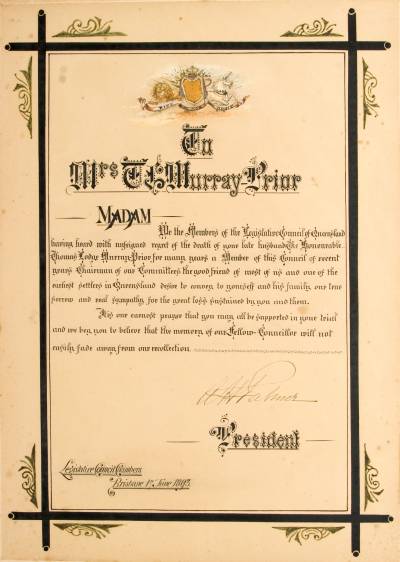 To
Mrs T L Murray Prior
MADAM
We the Members of the Legislative Council of Queensland
having heard with unfeigned regret of the death of your late husband the Honourable
Thomas Lodge Murray-Prior for many years a Member of this Council of recent
years Chairman of our Committees the good friend of most of us and one of the
earliest settlers in Queensland desire to convey to yourself and his family our true
sorrow and real sympathy for the great loss sustained by you and them.
It is our earnest prayer that you may all be supported in your trial
and we beg you to believe that the memory of our Fellow-Councillor will not
easily fade away from our recollection
A H Palmer
President
Legislative Council Chambers
Brisbane 1st June